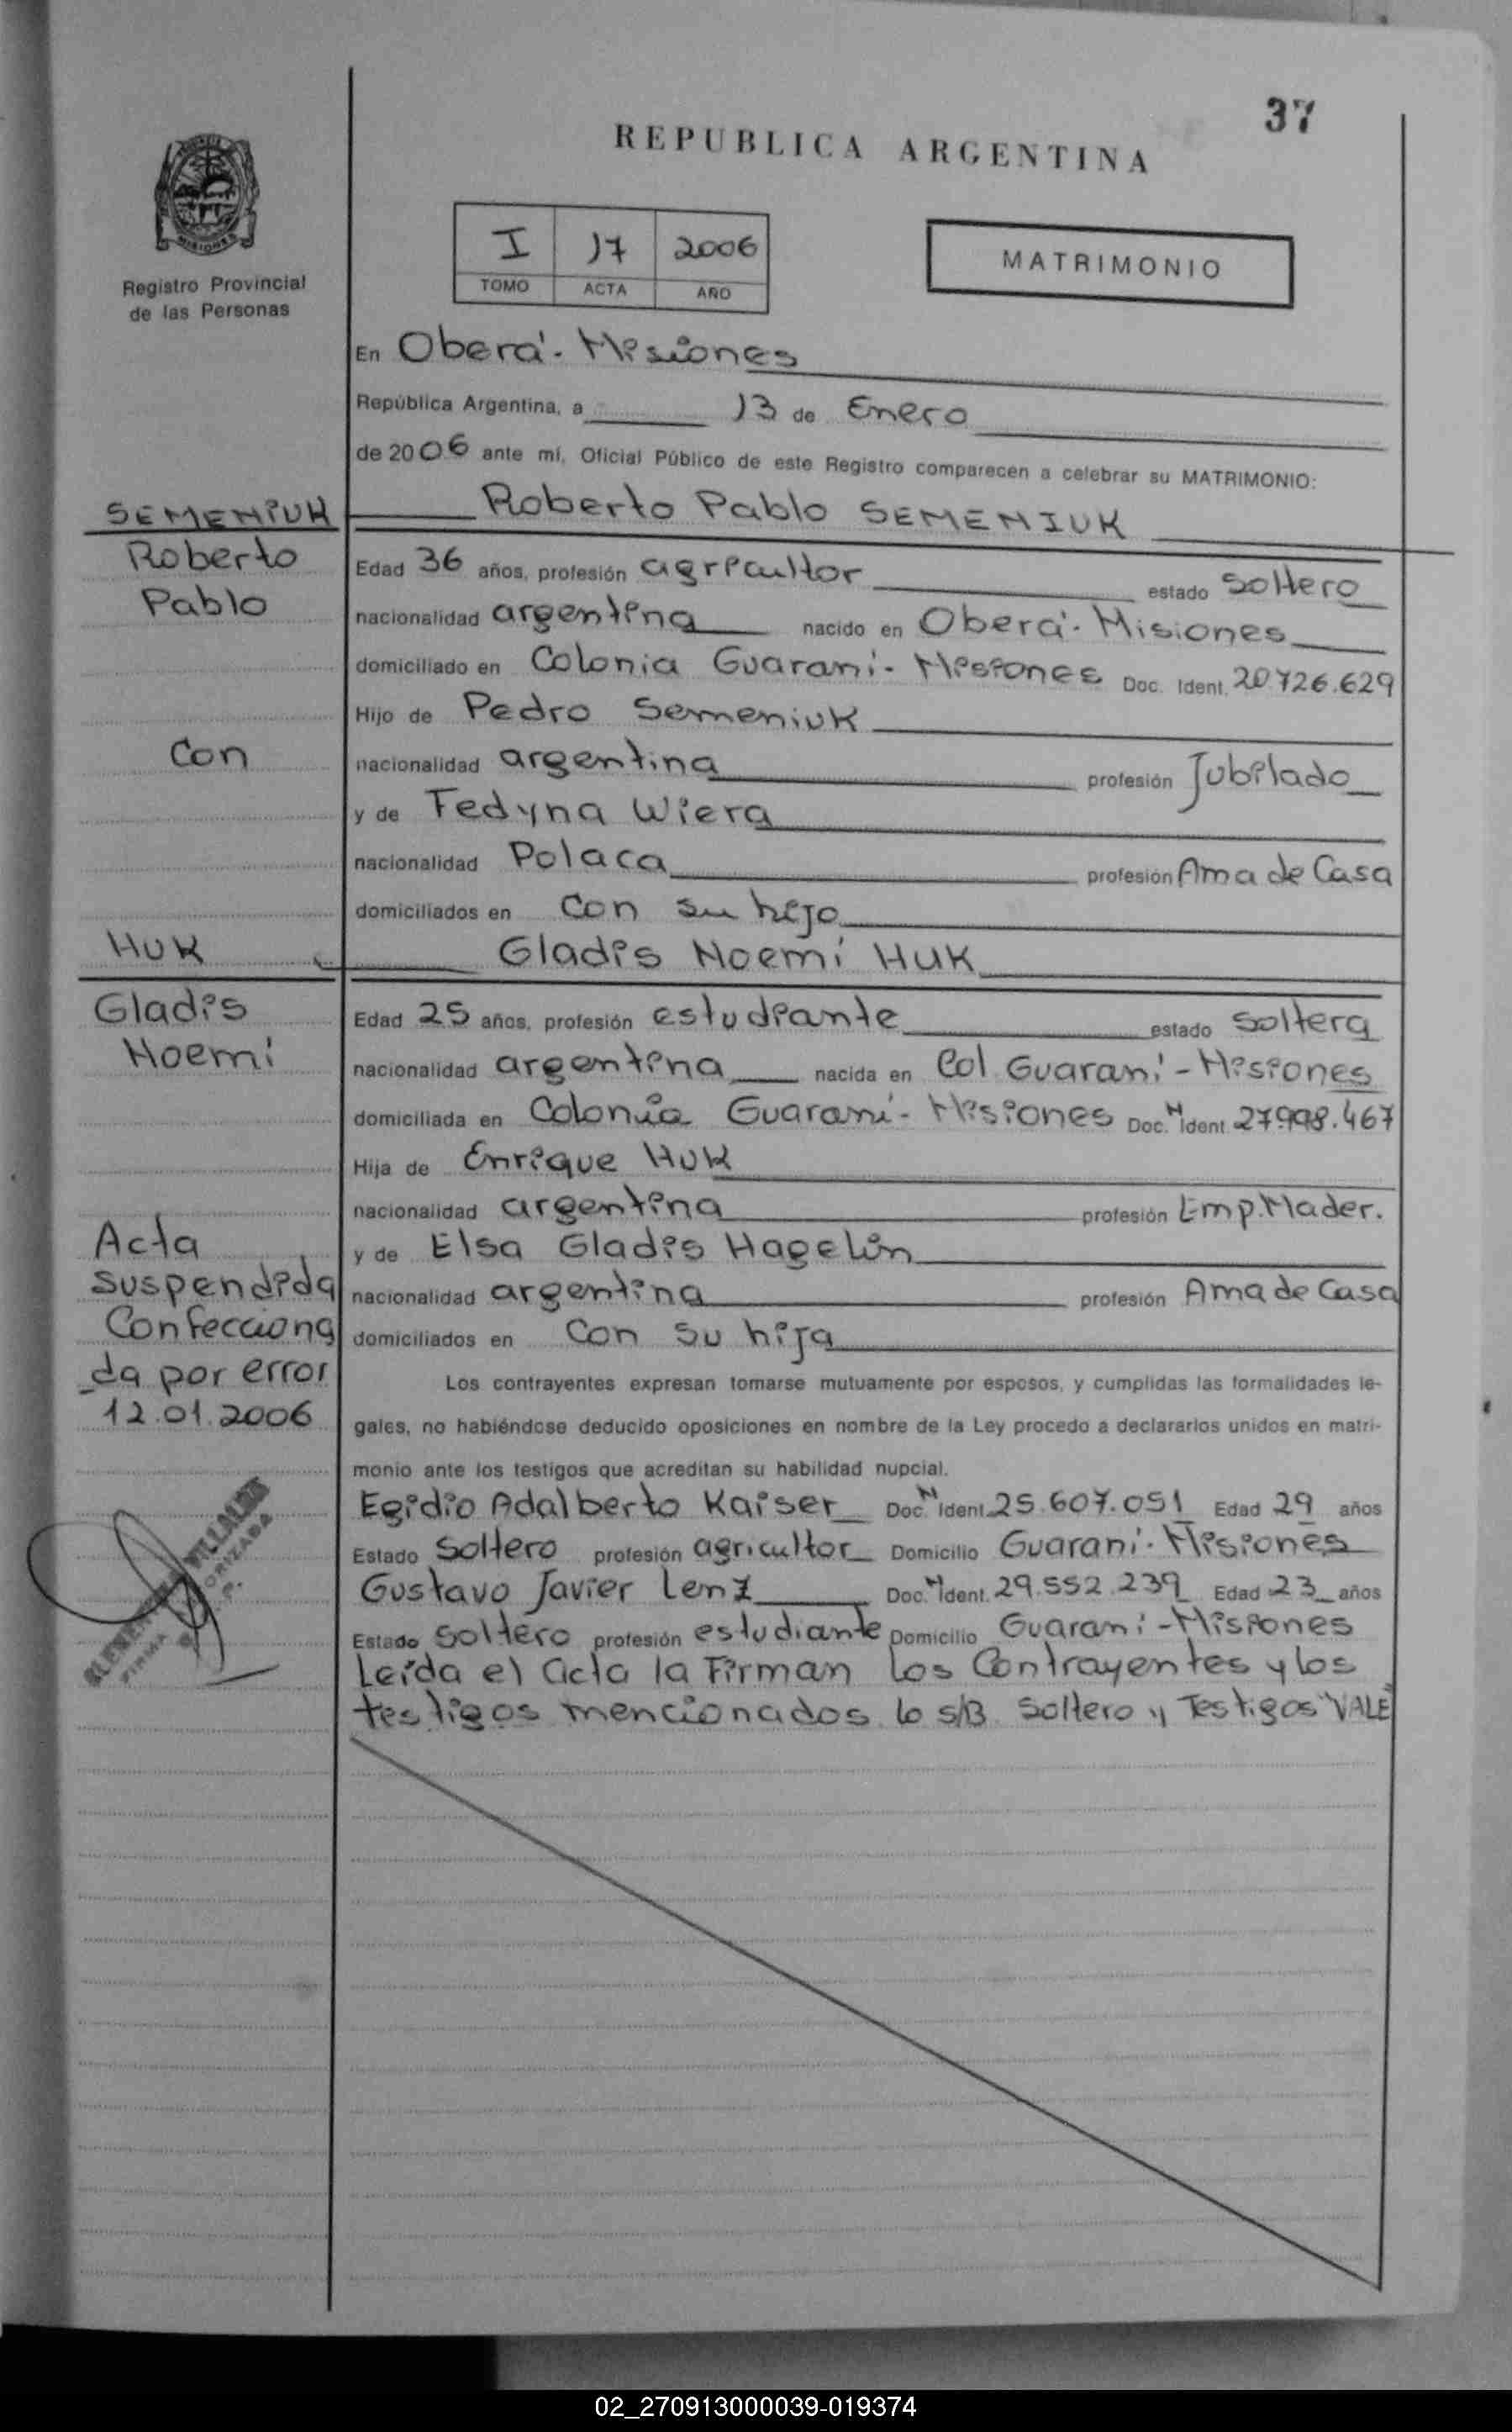 37
REPUBLICA ARGENTINA
MISIONES
Registro Provincial
de las Personas
I 17 2006
TOMO ACTA AÑO
MATRIMONIO
En Oberá - Misiones
República Argentina, a 13 de Enero
de 2006 ante mí, Oficial Público de este Registro comparecen a celebrar su MATRIMONIO:
SEMENIUK
Roberto
Pablo
Con
HUK
Gladis
Noemí
Acta
suspendida
Confecciona
da por error
12.01.2006
VILLALBA
FIRMA AUTORIZADA
Roberto Pablo SEMENIUK
Edad 36 años, profesión agricultor estado soltero
nacionalidad argentina nacido en Oberá - Misiones
domiciliado en Colonia Guaraní - Misiones Doc. Ident. 20726.629
Hijo de Pedro Semeniuk
nacionalidad argentina profesión Jubilado
y de Fedyna Wiera
nacionalidad Polaca profesión Ama de Casa
domiciliados en con su hijo
Gladis Noemí HUK
Edad 25 años, profesión estudiante estado soltera
nacionalidad argentina nacida en Col Guaraní - Misiones
domiciliada en Colonia Guaraní - Misiones Doc. N Ident. 27.998.467
Hija de Enrique HUK
nacionalidad argentina profesión Emp. Mader.
y de Elsa Gladis Hagelin
nacionalidad argentina profesión Ama de Casa
domiciliados en Con su hija
Los contrayentes expresan tomarse mutuamente por esposos, y cumplidas las formalidades le-
gales, no habiéndose deducido oposiciones en nombre de la Ley procedo a declararlos unidos en matri-
monio ante los testigos que acreditan su habilidad nupcial.
Egidio Adalberto Kaiser Doc. N Ident. 25.607.051 Edad 29 años
Estado Soltero profesión agricultor Domicilio Guaraní - Misiones
Gustavo Javier Lenz Doc. N Ident. 29.552.239 Edad 23 años
Estado Soltero profesión estudiante Domicilio Guaraní - Misiones
Leída el acta la Firman los Contrayentes y los
testigos mencionados lo s/B Soltero y Testigos "VALE"
02_270913000039-019374